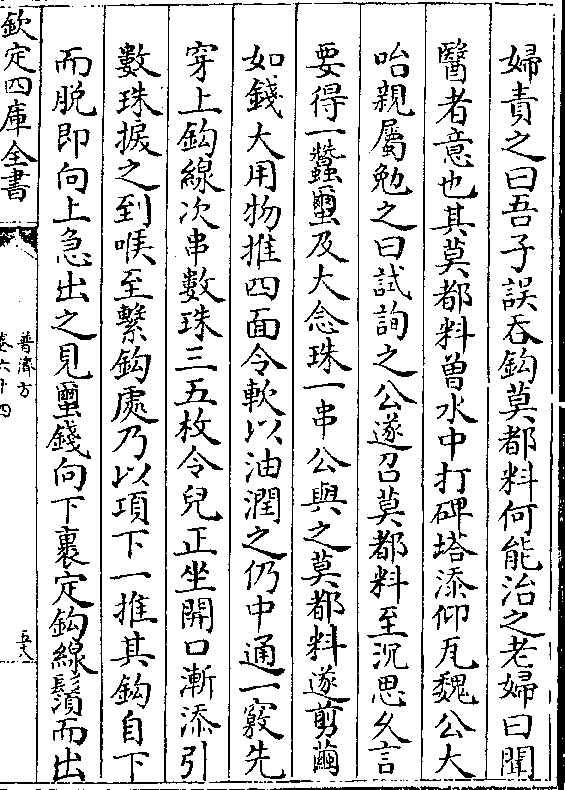 婦責之曰吾子誤吞鈎莫都料何能治之老婦曰聞
醫者意也其莫都料曽水中打碑塔添仰瓦魏公大
咍親屬勉之曰試詢之公遂召莫都料至沉思久言
要得一蠶壐及大念珠一串公與之莫都料遂剪繭
如錢大用物推四面令軟以油潤之仍中通一竅先
穿上鈎線次串數珠三五枚令兒正坐開口漸添引
數珠捩之到喉至繫鈎處乃以項下一推其鈎自下
而脫即向上急出之見壐錢向下裹定鈎線鬚而出
欽定四庫全書
普濟方
卷六十四
五十八